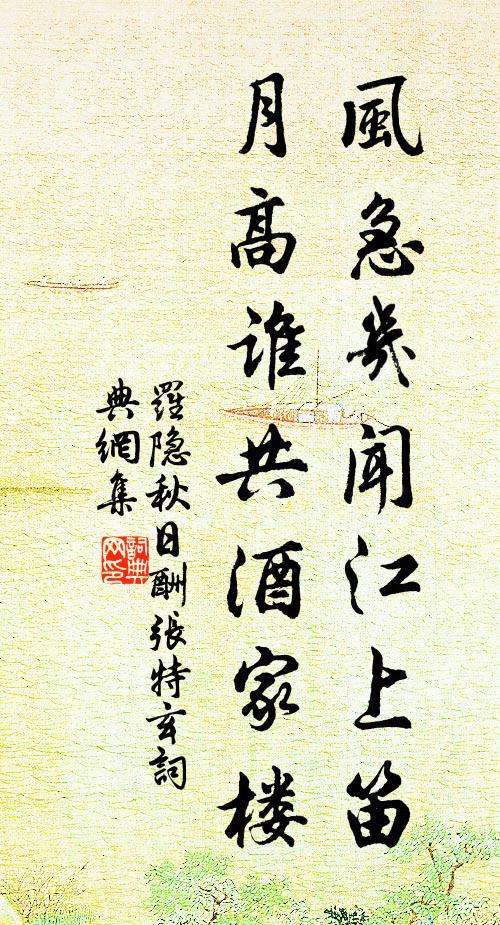 風急幾聞江上笛
月高誰共酒家楼
羅隐秋日酬张特玄詞
典網集
詞典
网印